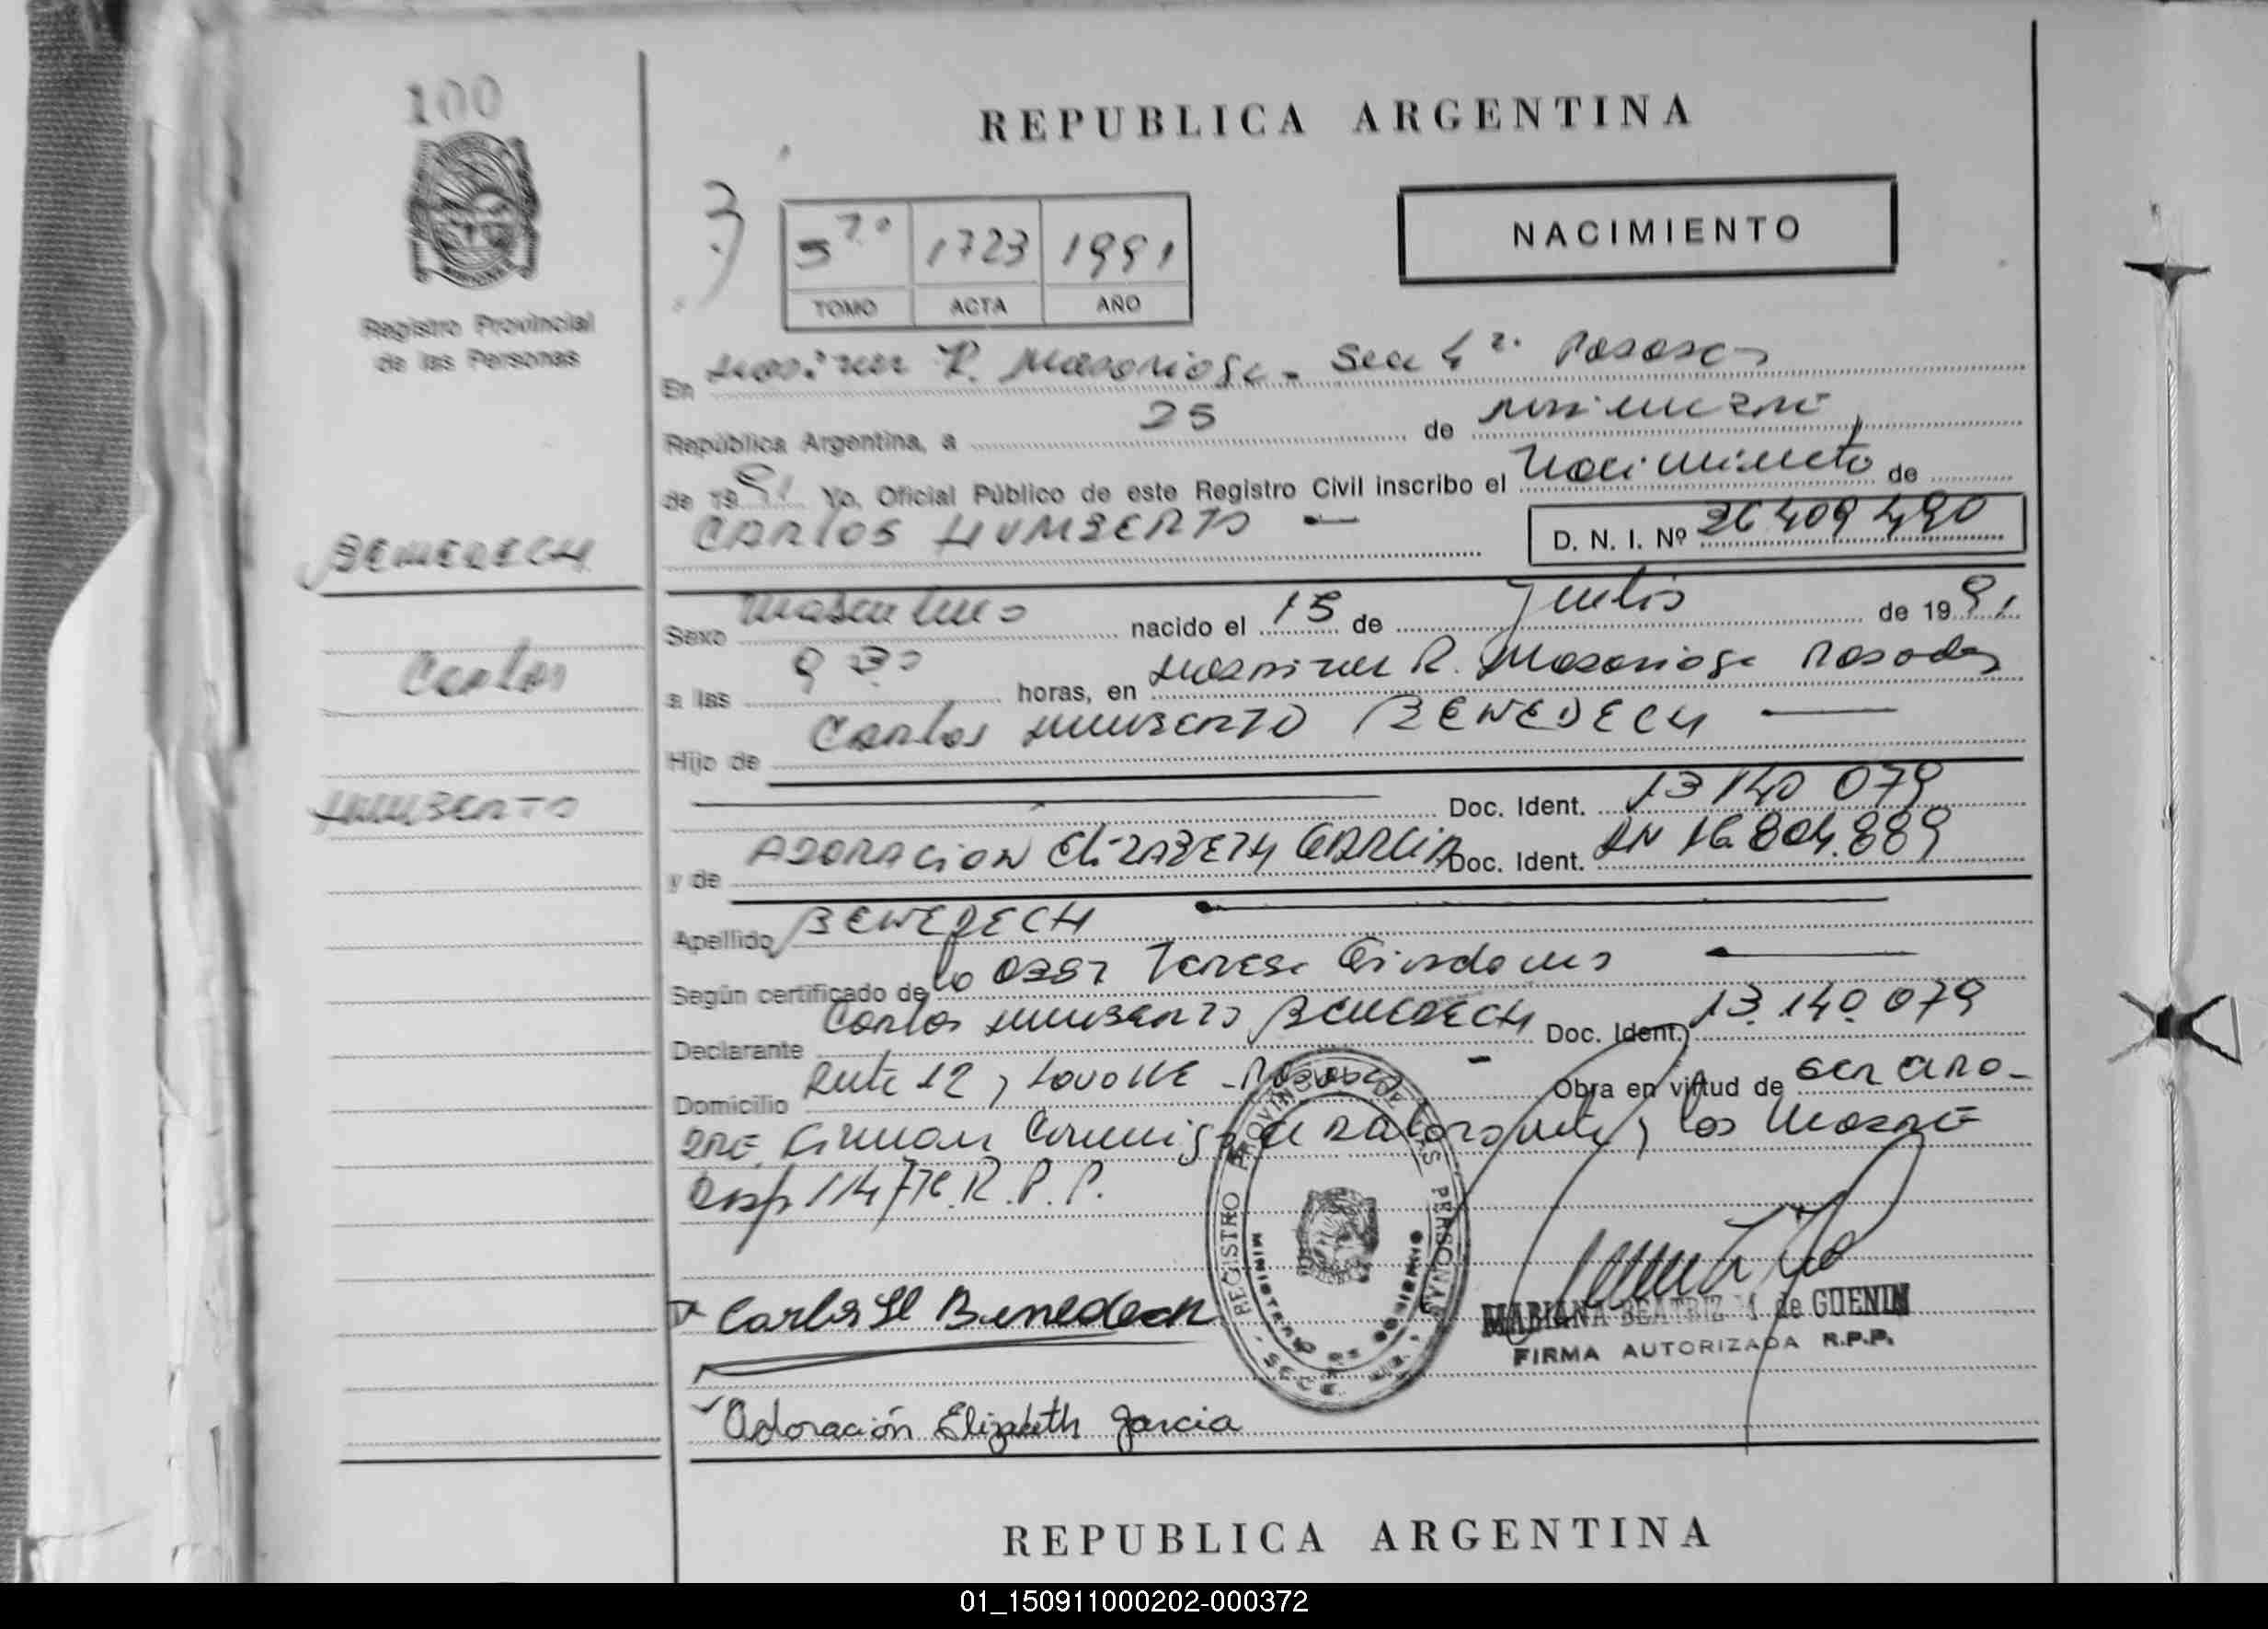 100
REPUBLICA ARGENTINA
NACIMIENTO
1723 1991
TOMO ACTA AÑO
Registro Provincial
de las Personas
En Hospital R. Madariaga - Sec 4ª. Posadas
República Argentina, a 25 de
de 1991 Yo, Oficial Público de este Registro Civil inscribo el Nacimiento de
CARLOS HUMBERTO
D. N. I. Nº 36 409 490
BENEDECH
Carlos
HUMBERTO
Sexo Masculino nacido el 15 de Julio de 1991
a las 9 30 horas, en Hospital R. Madariaga Posadas
Hijo de Carlos HUMBERTO BENEDECH
Doc. Ident. 13 140 079
y de ADORACION ELIZABETH GARCIA Doc. Ident. 16.804.889
Apellido BENEDECH
Según certificado de la Obst Teresa
Declarante Carlos HUMBERTO BENEDECH Doc. Ident. 13.140.079
Domicilio Ruta 12 y - Posadas Obra en virtud de ser
Firman conmigo el y la Madre
R.P.P.
REGISTRO PROVINCIAL DE LAS PERSONAS
MINISTERIO DE GOBIERNO
Carlos H Benedech
MARIANA BEATRIZ M de GUENIN
FIRMA AUTORIZADA R.P.P.
Adoración Elizabeth Garcia
REPUBLICA ARGENTINA
01_150911000202-000372